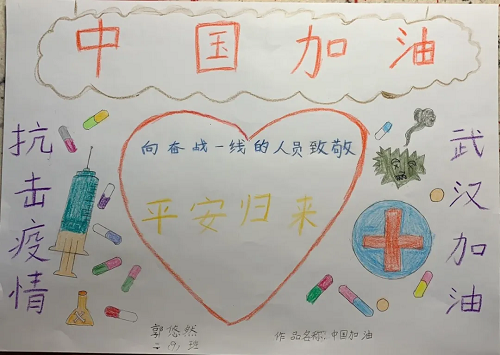 中国加油
抗击疫情
向奋战一线的人员致敬
平安归来
武汉加油
郭悠然
作品名称:中国加油